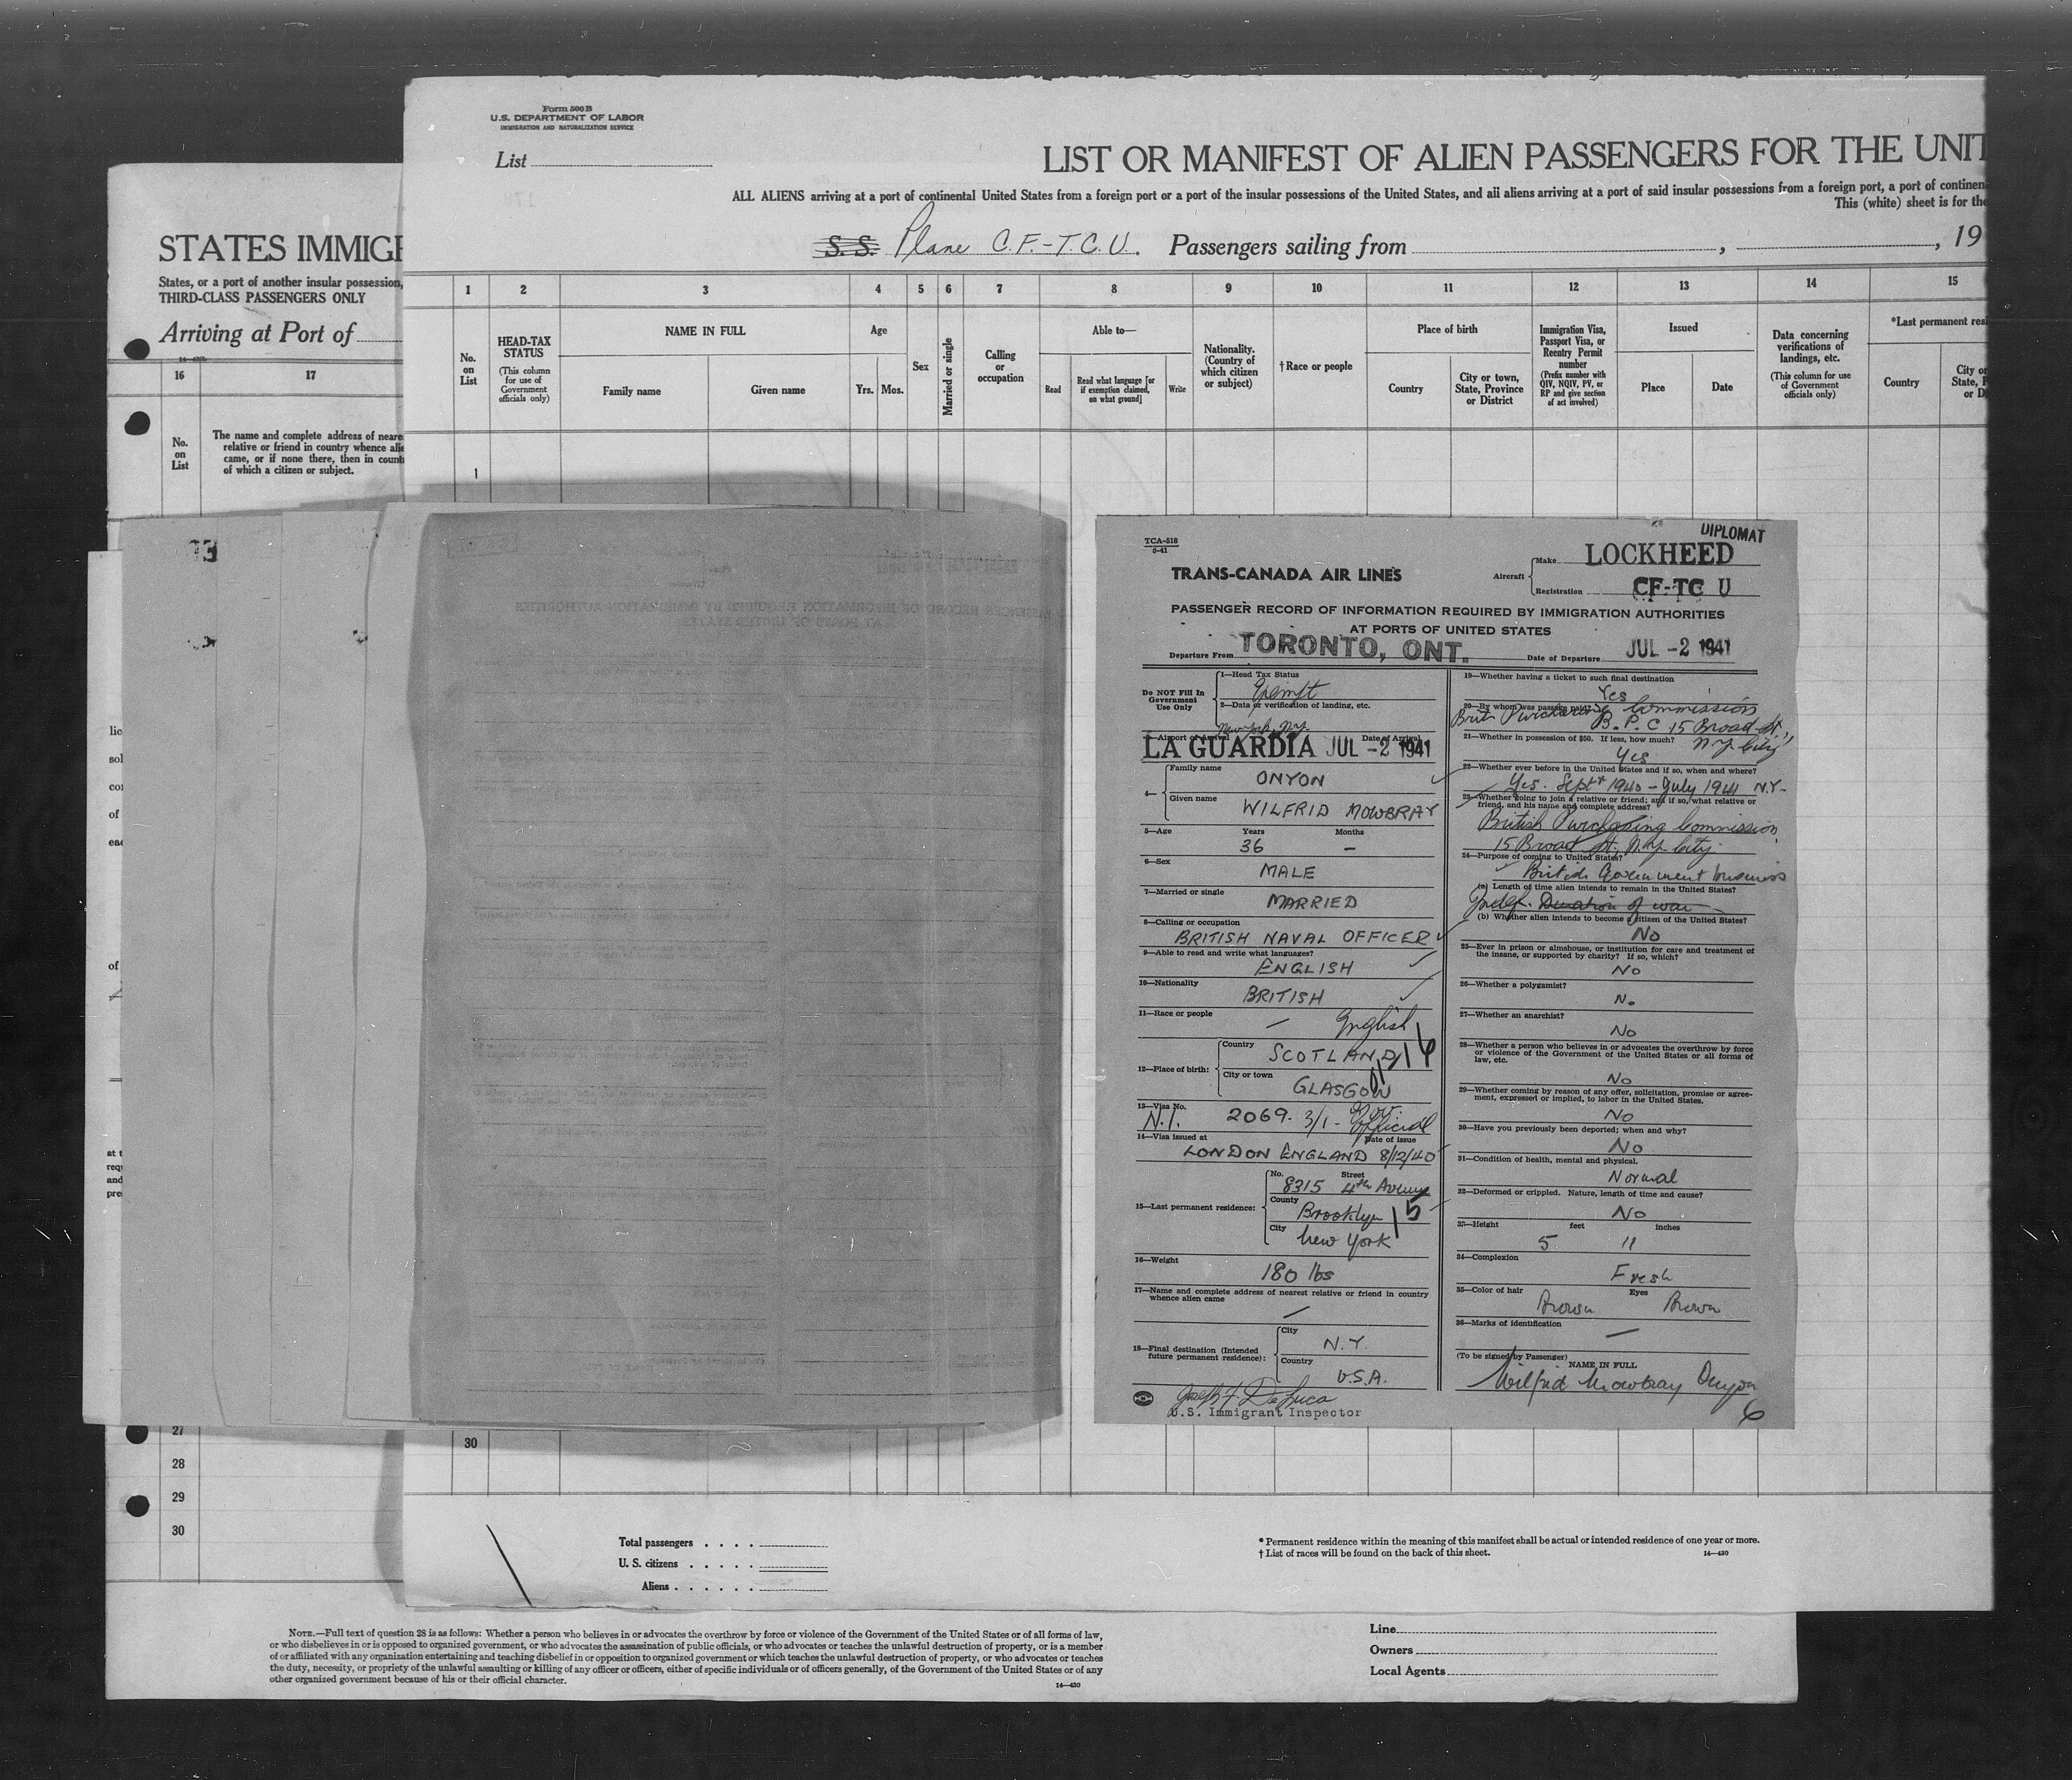 Form 500 B
U.S. DEPARTMENT OF LABOR
IMMIGRATION AND NATURALIZATION SERVICE
List
LIST OR MANIFEST OF ALIEN PASSENGERS FOR THE UNIT
ALL ALIENS arriving at a port of continental United States from a foreign port or a port of the insular possessions of the United States, and all aliens arriving at a port of said insular possessions from a foreign port, a port of continen
This (white) sheet is for the
S.S. Plane C.F.-T.C.U. Passengers sailing from , , 19
1 2 3 4 5 6 7 8 9 10 11 12 13 14 15
No. on List
HEAD-TAX STATUS
(This column for use of Government officials only)
NAME IN FULL
Family name
Given name
Age
Yrs. Mos.
Sex
Married or single
Calling or occupation
Able to—
Read
Read what language [or if exemption claimed, on what ground]
Write
Nationality. (Country of which citizen or subject)
†Race or people
Place of birth
Country
City or town, State, Province or District
Immigration Visa, Passport Visa, or Reentry Permit number
(Prefix number with QIV, NQIV, PV, or RP and give section of act involved)
Issued
Place
Date
Data concerning verifications of landings, etc.
(This column for use of Government officials only)
*Last permanent resi
Country
City or
State, P
or Di
1
STATES IMMIGR
States, or a port of another insular possession,
THIRD-CLASS PASSENGERS ONLY
Arriving at Port of
16 17
No. on List
The name and complete address of neare
relative or friend in country whence alie
came, or if none there, then in count
of which a citizen or subject.
lic
sol
cor
of
eac
of
at t
req
and
pre
TCA-518
6-41
DIPLOMAT
TRANS-CANADA AIR LINES
Aircraft
Make LOCKHEED
Registration CF-TC U
PASSENGER RECORD OF INFORMATION REQUIRED BY IMMIGRATION AUTHORITIES
AT PORTS OF UNITED STATES
Departure From TORONTO, ONT. Date of Departure JUL -2 1941
Do NOT Fill In
Government
Use Only
1—Head Tax Status
Exempt
2—Data of verification of landing, etc.
New York, N.Y.
3—Airport of Arrival Date of Arrival
LA GUARDIA JUL -2 1941
4—
Family name
ONYON
Given name
WILFRID MOWBRAY
5—Age Years Months
36 —
6—Sex
MALE
7—Married or single
MARRIED
8—Calling or occupation
BRITISH NAVAL OFFICER
9—Able to read and write what languages?
ENGLISH
10—Nationality
BRITISH
11—Race or people
— English
12—Place of birth:
Country
SCOTLAND
City or town
GLASGOW
13—Visa No.
N.I. 2069. 3/1 - Gov. Official
14—Visa issued at Date of issue
LONDON ENGLAND 8/12/40
15—Last permanent residence:
No. Street
8315 4th Avenue
County
Brooklyn 15
City
New York
16—Weight
180 lbs
17—Name and complete address of nearest relative or friend in country
whence alien came
—
18—Final destination (Intended
future permanent residence):
City
N.Y.
Country
U.S.A.
Joseph F. DeLuca
U.S. Immigrant Inspector
19—Whether having a ticket to such final destination
Yes
20—By whom was passage paid?
Brit. Purchasing Commission
B.P.C 15 Broad St.,
N.Y. City
21—Whether in possession of $50. If less, how much?
Yes
22—Whether ever before in the United States and if so, when and where?
Yes. Sept 1940 - July 1941 N.Y.
23—Whether going to join a relative or friend; and if so, what relative or
friend, and his name and complete address?
British Purchasing Commission
15 Broad St, N.Y. City.
24—Purpose of coming to United States?
British Government business
(a) Length of time alien intends to remain in the United States?
Indef. Duration of war
(b) Whether alien intends to become a citizen of the United States?
No
25—Ever in prison or almshouse, or institution for care and treatment of
the insane, or supported by charity? If so, which?
No
26—Whether a polygamist?
No
27—Whether an anarchist?
No
28—Whether a person who believes in or advocates the overthrow by force
or violence of the Government of the United States or all forms of
law, etc.
No
29—Whether coming by reason of any offer, solicitation, promise or agree-
ment, expressed or implied, to labor in the United States.
No
30—Have you previously been deported; when and why?
No
31—Condition of health, mental and physical.
Normal
32—Deformed or crippled. Nature, length of time and cause?
No
33—Height feet inches
5 11
34—Complexion
Fresh
35—Color of hair Eyes
Brown Brown
36—Marks of identification
—
(To be signed by Passenger)
NAME IN FULL
Wilfrid Mowbray Onyon
6
27
28
29
30
30
Total passengers
U. S. citizens
Aliens
* Permanent residence within the meaning of this manifest shall be actual or intended residence of one year or more.
† List of races will be found on the back of this sheet. 14—430
NOTE.—Full text of question 28 is as follows: Whether a person who believes in or advocates the overthrow by force or violence of the Government of the United States or of all forms of law,
or who disbelieves in or is opposed to organized government, or who advocates the assassination of public officials, or who advocates or teaches the unlawful destruction of property, or is a member
of or affiliated with any organization entertaining and teaching disbelief in or opposition to organized government or which teaches the unlawful destruction of property, or who advocates or teaches
the duty, necessity, or propriety of the unlawful assaulting or killing of any officer or officers, either of specific individuals or of officers generally, of the Government of the United States or of any
other organized government because of his or their official character.
14—430
Line
Owners
Local Agents